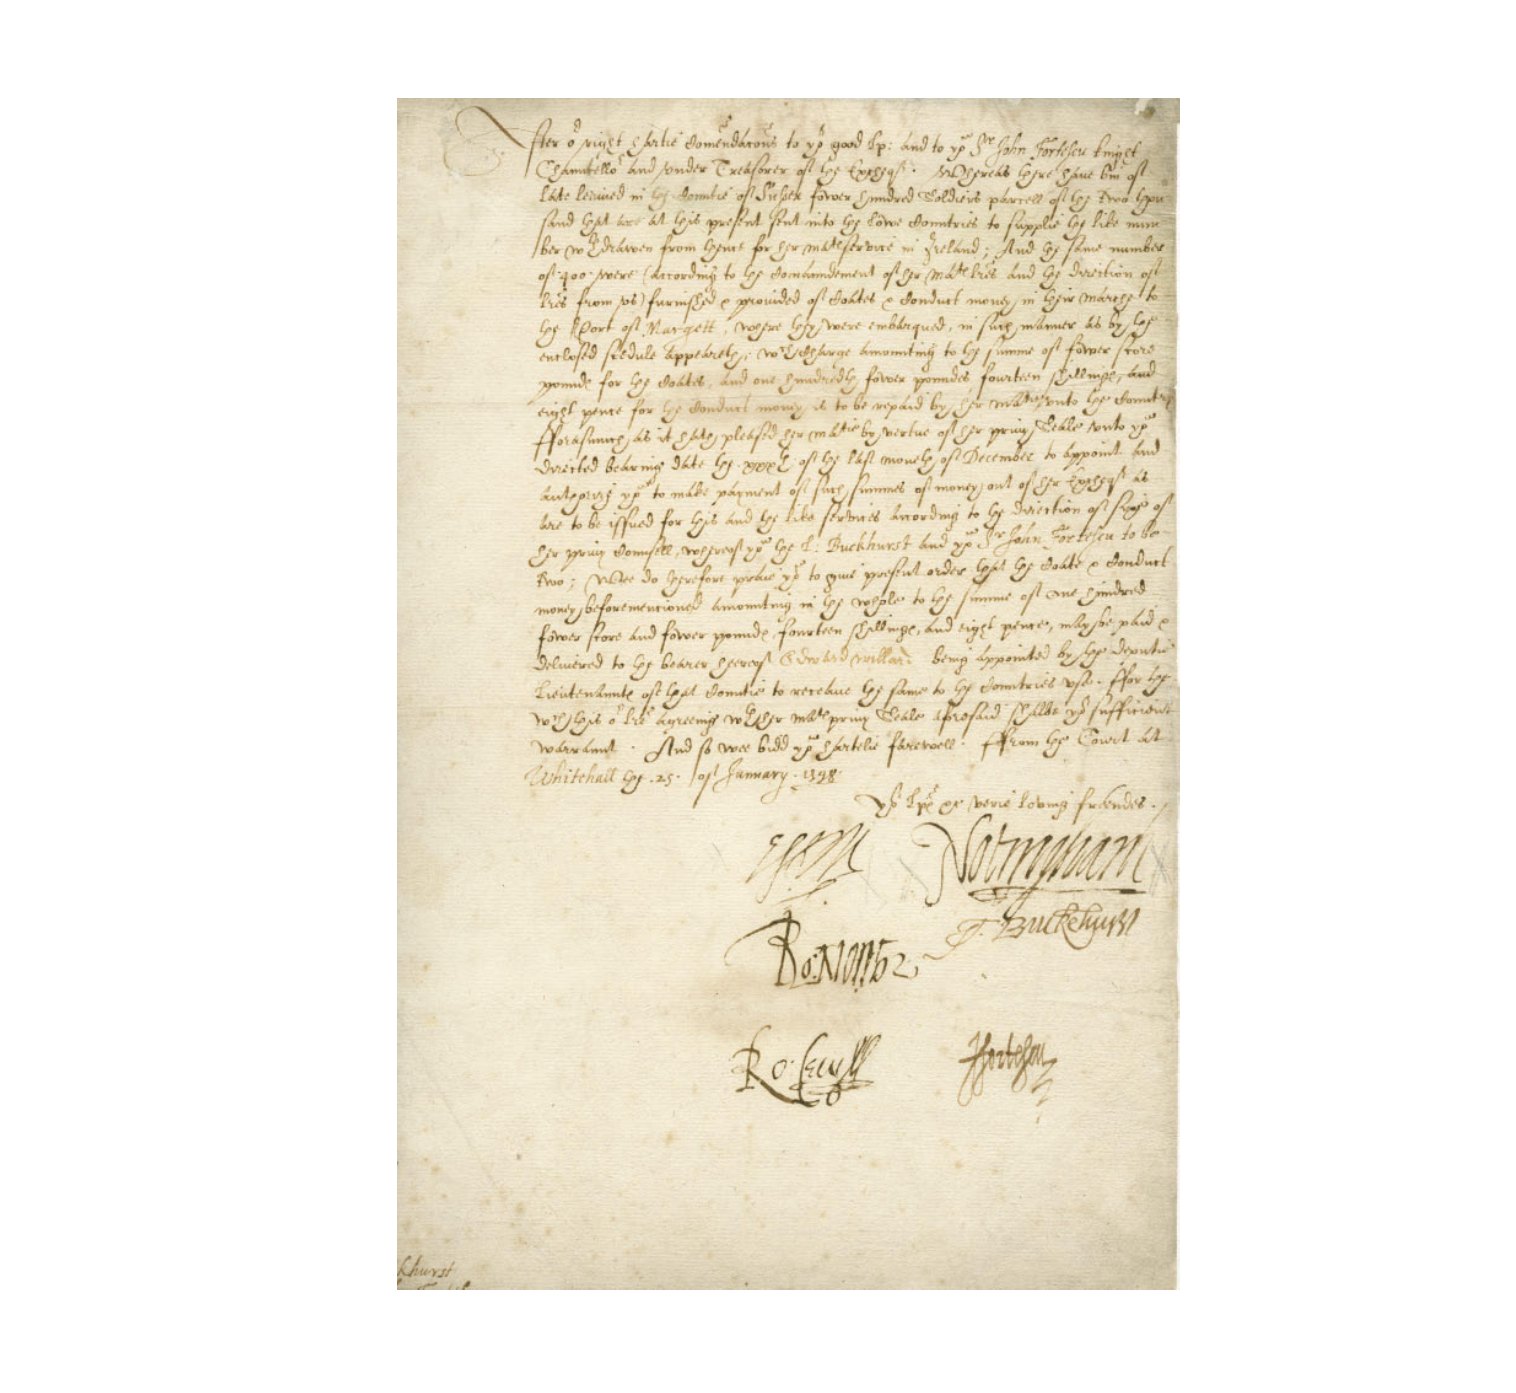 After or right hartie Comendacons to yor good Lp: and to yow Sr John Fortescu knight
Chauncellor and under Treasorer of the Excheqr. Whereas there have bin of
late levied in the Countie of Sussex fower hundred Soldiers parcell of the Two thou
sand that are at this present sent into the Lowe Countries to supplie the like num
ber wth drawen from thence for her mats service in Ireland; And the same number
of 400 were (according to the Comaundement of her mats lres and the direction of
lres from us) furnished & provided of Coates & Conduct money in their marche to
the Port of Margett, where they were embarqued, in such manner as by the
enclosed scedule appeareth; wch Charge amounting to the summe of fower score
poundes for the Coates, and one hundredth fower poundes fourteen shillinges, and
eight pence for the Conduct money is to be repaid by her matie unto the Countery
fforasmuch as it hath pleased her matie by vertue of her privy Seale unto yow
directed bearing date the xxxth of the last moneth of December to appoint and
authorize yow to make payment of such summes of money out of her Excheqr as
are to be issued for this and the like services according to the direction of sixe of
her privy Counsell, whereof yow the L: Buckhurst and yow Sr John Fortescu to be
two; Wee do therefore praie yow to give present order that the Coate & Conduct
money beforementioned amounting in the whole to the summe of One hundred
fower score and fower poundes, fourteen shillinges, and eight pence, may be paid &
delivered to the bearer hereof Edward Willard being appointed by the deputie
Lieutenauntes of that Countie to receave the same to the Countries use. ffor the
wch this or lre agreeing wth her mats privy Seale aforesaid shalbe yor sufficient
warrannt. And so wee bidd yow hartelie farewell. ffrom the Court at
Whitehall the .25. of January. 1598.
yor Lps &c verie loving freendes.
Notingham
T. Buckehurst
Ro: North
Ro: Cecyll
J Fortescu
khurst